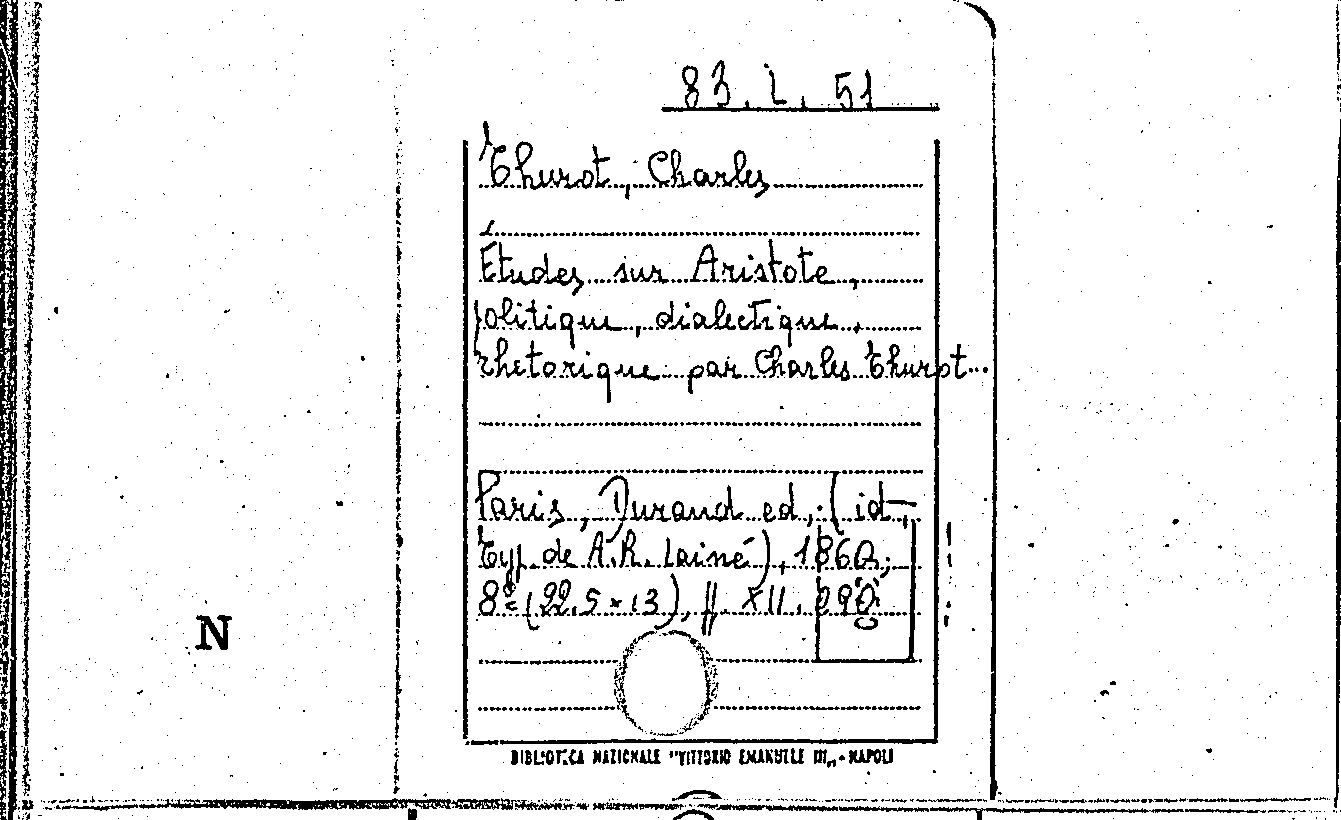 83. L. 51
Thurot, Charles
Études sur Aristote,
politique, dialectique,
rhetorique par Charles Thurot...
Paris, Durand ed., (id.,
Typ. de A.R. Lainé), 1860;
8º (22,5 x 13), pp. XII, 290
N
BIBLIOTECA NAZIONALE "VITTORIO EMANUELE III„ - NAPOLI